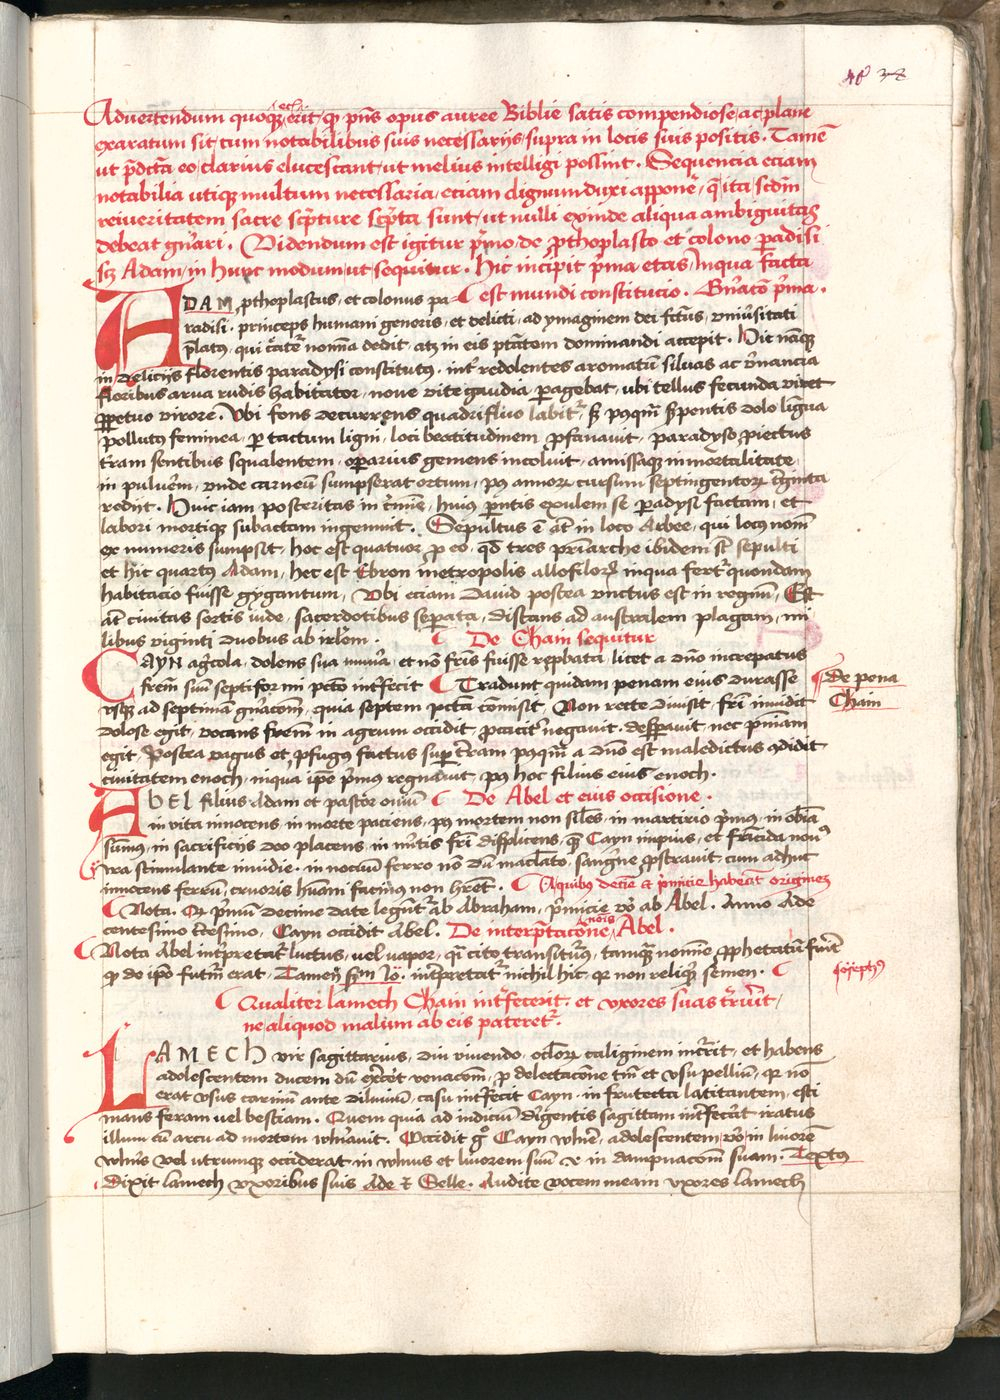 38
Advertendum quoq; eciam erit, qp pn̄s opus auree Biblie satis compendiose, ac plane
exaratum sit, cum notabilibus suis necessarijs, supra in locis suis positis. Tamē
ut p̄dcta eo clarius elucescant, ut melius intelligi possint. Sequencia eciam
notabilia utiq; multum necessaria, eciam dignum duxi apponē, q̄ ita scdm
rei veritatem sacre scp̄ture scp̄ta sunt, ut nulli exinde aliqua ambiguitas
debeat gn̄ari. Videndum est igitur p̄mo de p̄thoplasto et colono padisi
sz Adam, in hunc modum ut sequitur. Hic incipit p̄ma etas, inqua facta
est mundi constitucio. Gn̄acō p̄ma.
ADAM p̄thoplastus, et colonus pa
radisi. princeps humani generis, et delicti, ad ymaginem dei fctus, vniūsitati
p̄latus, qui cāterꝭ nomīa dedit, atz in eis ptātem dominandi accepit. Hic nāq;
in delicijs florentis paradysi constitutus, intꝭ redolentes aromatū siluas ac v̄nancia
floribus arua rudis habitator, noue vite gaudia pagebat, ubi tellus fecunda viret
ppetuo virore. Vbi fons decurrens quadrifluo labitꝛ, sz pꝯqm̄ sp̄entis dolo lig̅ua
pollutus feminea, p tactum ligni, loci beatitudinem p̄fanauit, paradyso p̄iectus
tr̄am sentibus squalentem, oparius gemens incoluit, amissaq; inmortalitate,
in puluerē, vnde carneū sumpserat ortum, pꝯ annoꝝ cursum septingentoꝝ tginta
redijt. Huic iam posteritas in cīmie, huius p̄ntis exulem se padysi factam, et
labori mortiq; subactam ingemuit. Sepultus ē āt in loco Arbee, qui locꝯ nom̄
ex numeris sumpsit, hoc est quatuor, p eo, qd tres pri̅arche ibidem st sepulti
et hic quartꝯ Adam, hec est Ebron metropolis allofiloꝝ, inqua fertꝛ quondam
habitacio fuisse gygantum, Vbi eciam Dauid postea vnctus est in regnū, Est
āt ciuitas sortis iude, sacerdotibus sepata, distans ad australem plagam, mi
libus viginti duobus ab irlm̄. De Chain sequitur
CAYN agcola, dolens sua mūia, et nō fr̄is fuisse repbata, licet a dn̄o increpatus
frem̄ suū septiformi pctō intfecit Tradunt quidam penam eius durasse
vsq; ad septimā gn̄acōm, quia septem pcta cōmisit. Non recte diuisit, fr̄i inuidit
dolose egit, vocans frem̄ in agrum occidit, pcacitꝭ negauit, despauit, nec pn̄iam
egit, Postea vagus et pfugus factus sup tr̄am pꝯqm̄ a dn̄o est maledictus ꝯdidit
ciuitatem enoch, inqua ipe p̄mus regnauit, pꝯ hoc filius eius enoch.
De pena
Chain
ABEL filius Adam et pastor ouiū De Abel et eius occisione.
in vita innocens, in morte paciens, pꝯ mortem non siles, in martirio p̄mus, in obīa
sūmus, in sacrificijs deo placens, in mītis fr̄i displicens, quē Cayn impius, et fricida nouꝯ
yra stimulante inuidie, in nociuū ferro nō dū maclato, sanguīe pstrauit, cum adhuc
innocens ferrū, cruoris hum̄ani facinus non hr̄et. A quibus decie et p̄micie habeāt originez
Nota. Qr̄ p̄mum decime date legūtꝛ ab Abraham, p̄micie vō ab Abel. Anno Ade
centesimo tcesimo, Cayn occidit Abel. De interp̄tacōne nōis Abel.
Nota Abel intp̄tatꝛ luctus, vel vapor, qr̄ cito transiturꝯ, tamq; nomīe pphetatū fuīt
qp de ipō futm̄ erat, Tamen scdm Jo. intp̄tatꝛ nichil hic, qr non reliqt semen.
Josephꝯ
Qualiter lamech Chain intfecerit, et vxores suas truīt,
ne aliquod malum ab eis pateretꝛ.
LAMECH vir sagittarius, diu viuendo, ocloꝝ caliginem incrīt, et habens
adolescentem ducem dū excet venacōm, p delectacōne tm̄ et vsu pelliū, qr nō
erat vsus carniū ante diluuiū, casu intfecit Cayn in frutecta latitantem, esti
mans feram uel bestiam. Quem quia ad indiciū digentis sagittam intfecāt iratus
illum cū arcu ad mortem vlnauit. Occidit gº Cayn vlnē, adolescentem vō in liuorē
vlnīs vel utrumq; occiderat in vlnus et liuorem suū, i. in dampnacōm suam. Textus
Dixit lamech vxoribus suis Ade & Selle. Audite vocem meam vxores lamech